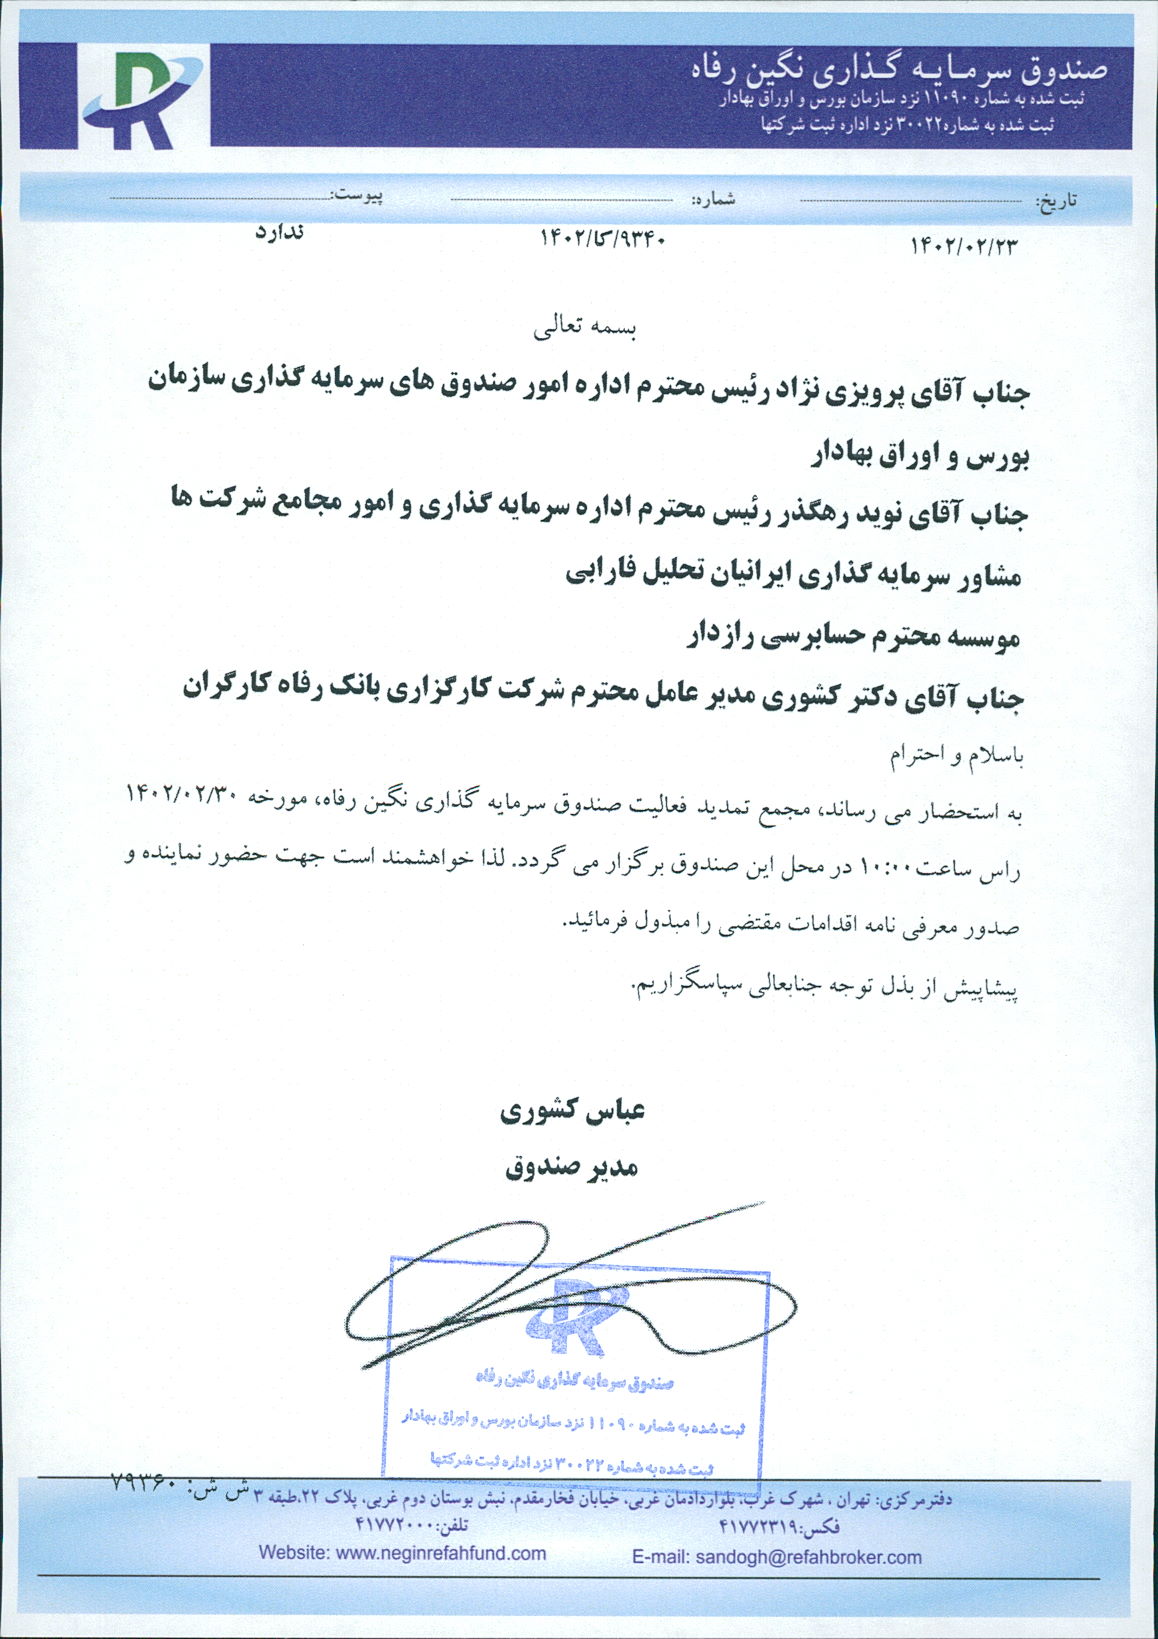 صندوق سرمایه گذاری نگین رفاه
ثبت شده به شماره ۱۱۰۹۰ نزد سازمان بورس و اوراق بهادار
ثبت شده به شماره۳۰۰۲۲ نزد اداره ثبت شرکتها
تاریخ: شماره: پیوست:
۱۴۰۲/۰۲/۲۳ ۱۴۰۲/کا/۹۳۴۰ ندارد
بسمه تعالی
جناب آقای پرویزی نژاد رئیس محترم اداره امور صندوق های سرمایه گذاری سازمان
بورس و اوراق بهادار
جناب آقای نوید رهگذر رئیس محترم اداره سرمایه گذاری و امور مجامع شرکت ها
مشاور سرمایه گذاری ایرانیان تحلیل فارابی
موسسه محترم حسابرسی رازدار
جناب آقای دکتر کشوری مدیر عامل محترم شرکت کارگزاری بانک رفاه کارگران
باسلام و احترام
به استحضار می رساند، مجمع تمدید فعالیت صندوق سرمایه گذاری نگین رفاه، مورخه ۱۴۰۲/۰۲/۳۰
راس ساعت۱۰:۰۰ در محل این صندوق برگزار می گردد. لذا خواهشمند است جهت حضور نماینده و
صدور معرفی نامه اقدامات مقتضی را مبذول فرمائید.
پیشاپیش از بذل توجه جنابعالی سپاسگزاریم.
عباس کشوری
مدیر صندوق
صندوق سرمایه گذاری نگین رفاه
ثبت شده به شماره ۱۱۰۹۰ نزد سازمان بورس و اوراق بهادار
ثبت شده به شماره ۳۰۰۲۲ نزد اداره ثبت شرکتها
ش ش: ۷۹۳۶۰
دفترمرکزی: تهران ، شهرک غرب، بلواردادمان غربی، خیابان فخارمقدم، نبش بوستان دوم غربی، پلاک ۲۲،طبقه ۳
فکس:۴۱۷۷۲۳۱۹ تلفن:۴۱۷۷۲۰۰۰
E-mail: sandogh@refahbroker.com Website: www.neginrefahfund.com